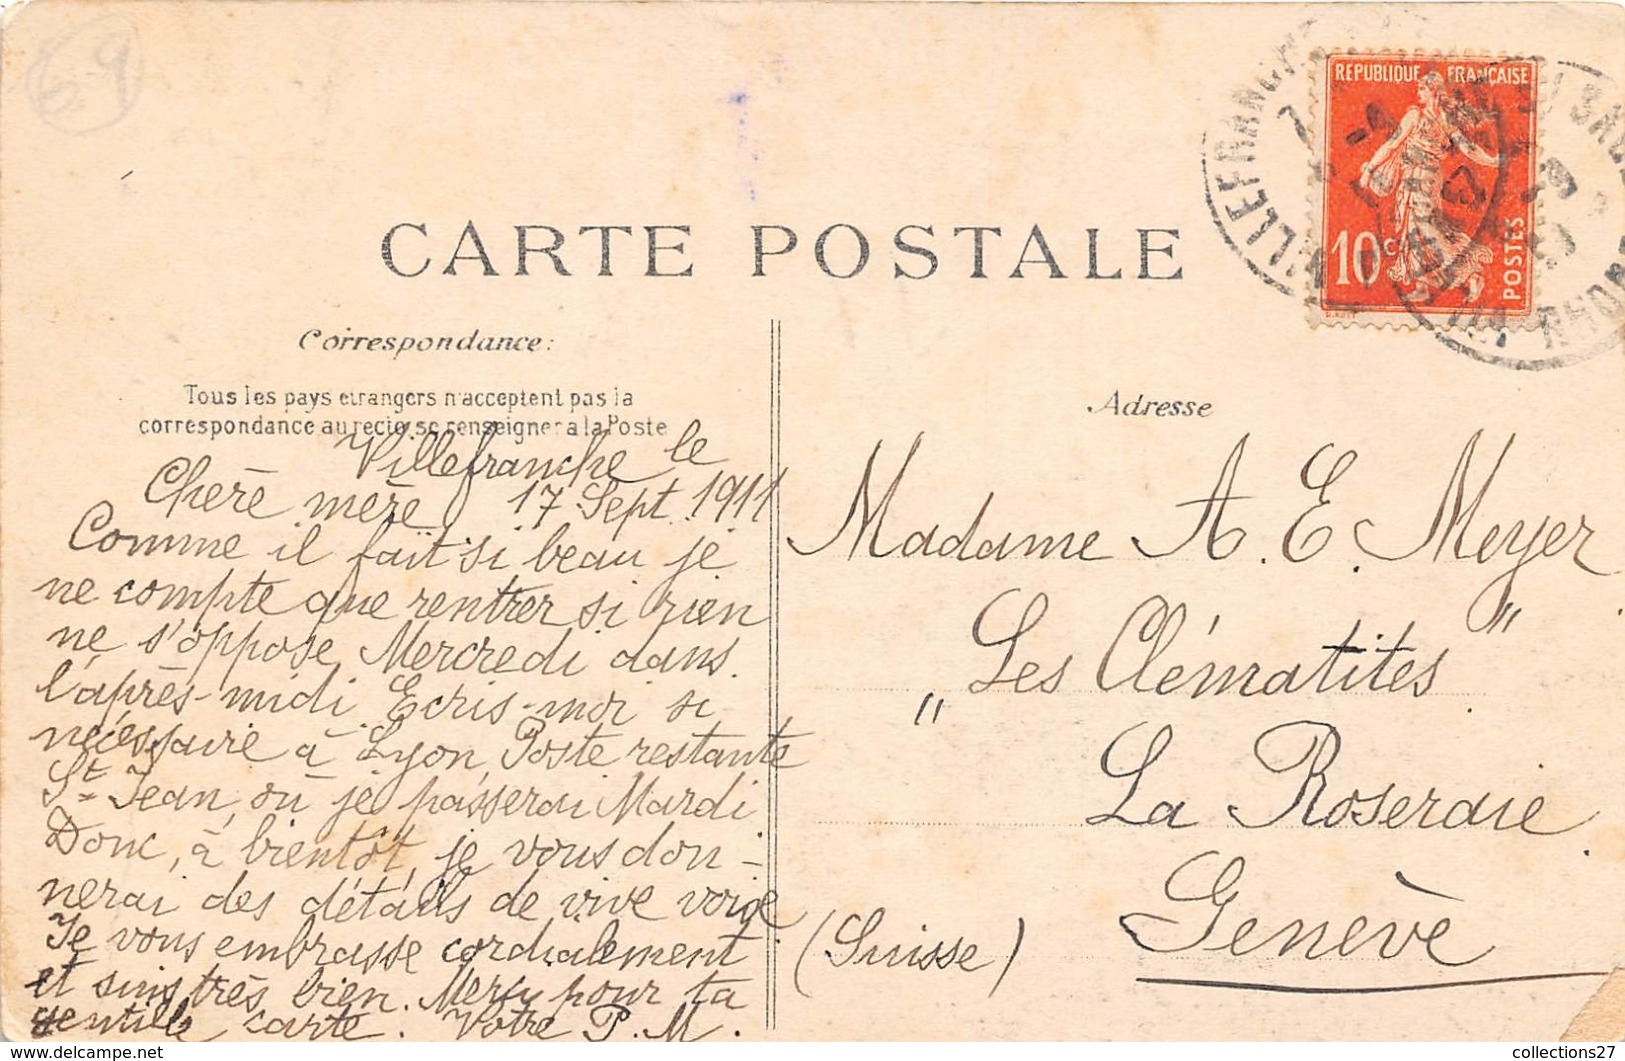 69
REPUBLIQUE FRANÇAISE
10c
POSTES
VILLEFRANCHE
RHONE
CARTE POSTALE
Correspondance:
Tous les pays etrangers n'acceptent pas la
correspondance au recto, se renseigner a la Poste
Villefranche le
Chère mère 17 Sept. 1911
Comme il fait si beau je
ne compte que rentrer si rien
ne s'oppose Mercredi dans
l'après-midi. Ecris-moi si
nécessaire à Lyon, Poste restante
St Jean, où je passerai Mardi
Donc, à bientôt, je vous don-
nerai des détails de vive voix
Je vous embrasse cordialement
et suis très bien. Merci pour ta
gentille carte. Votre P. M.
Adresse
Madame A. E. Meyer
"Les Clématites"
La Roseraie
Genève
(Suisse)
collections27